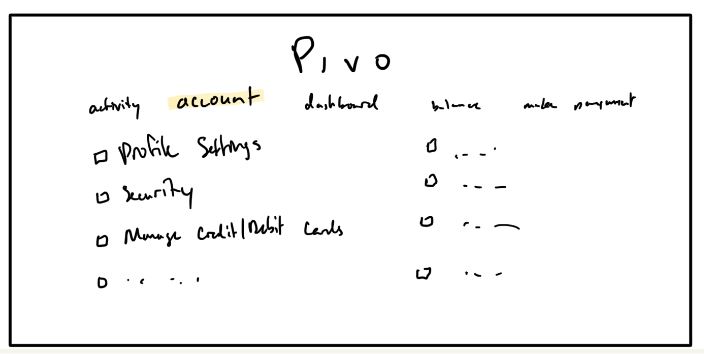 Pivo
activity account dashboard balance make payment
Profile Settings
Security
Manage Credit/Debit Cards